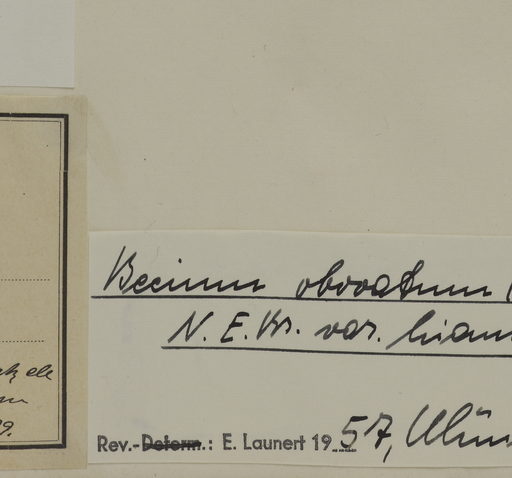 Becium obovatum (
N. E. Br. var. hians
Rev.-Determ.: E. Launert 1957, Mün
9.